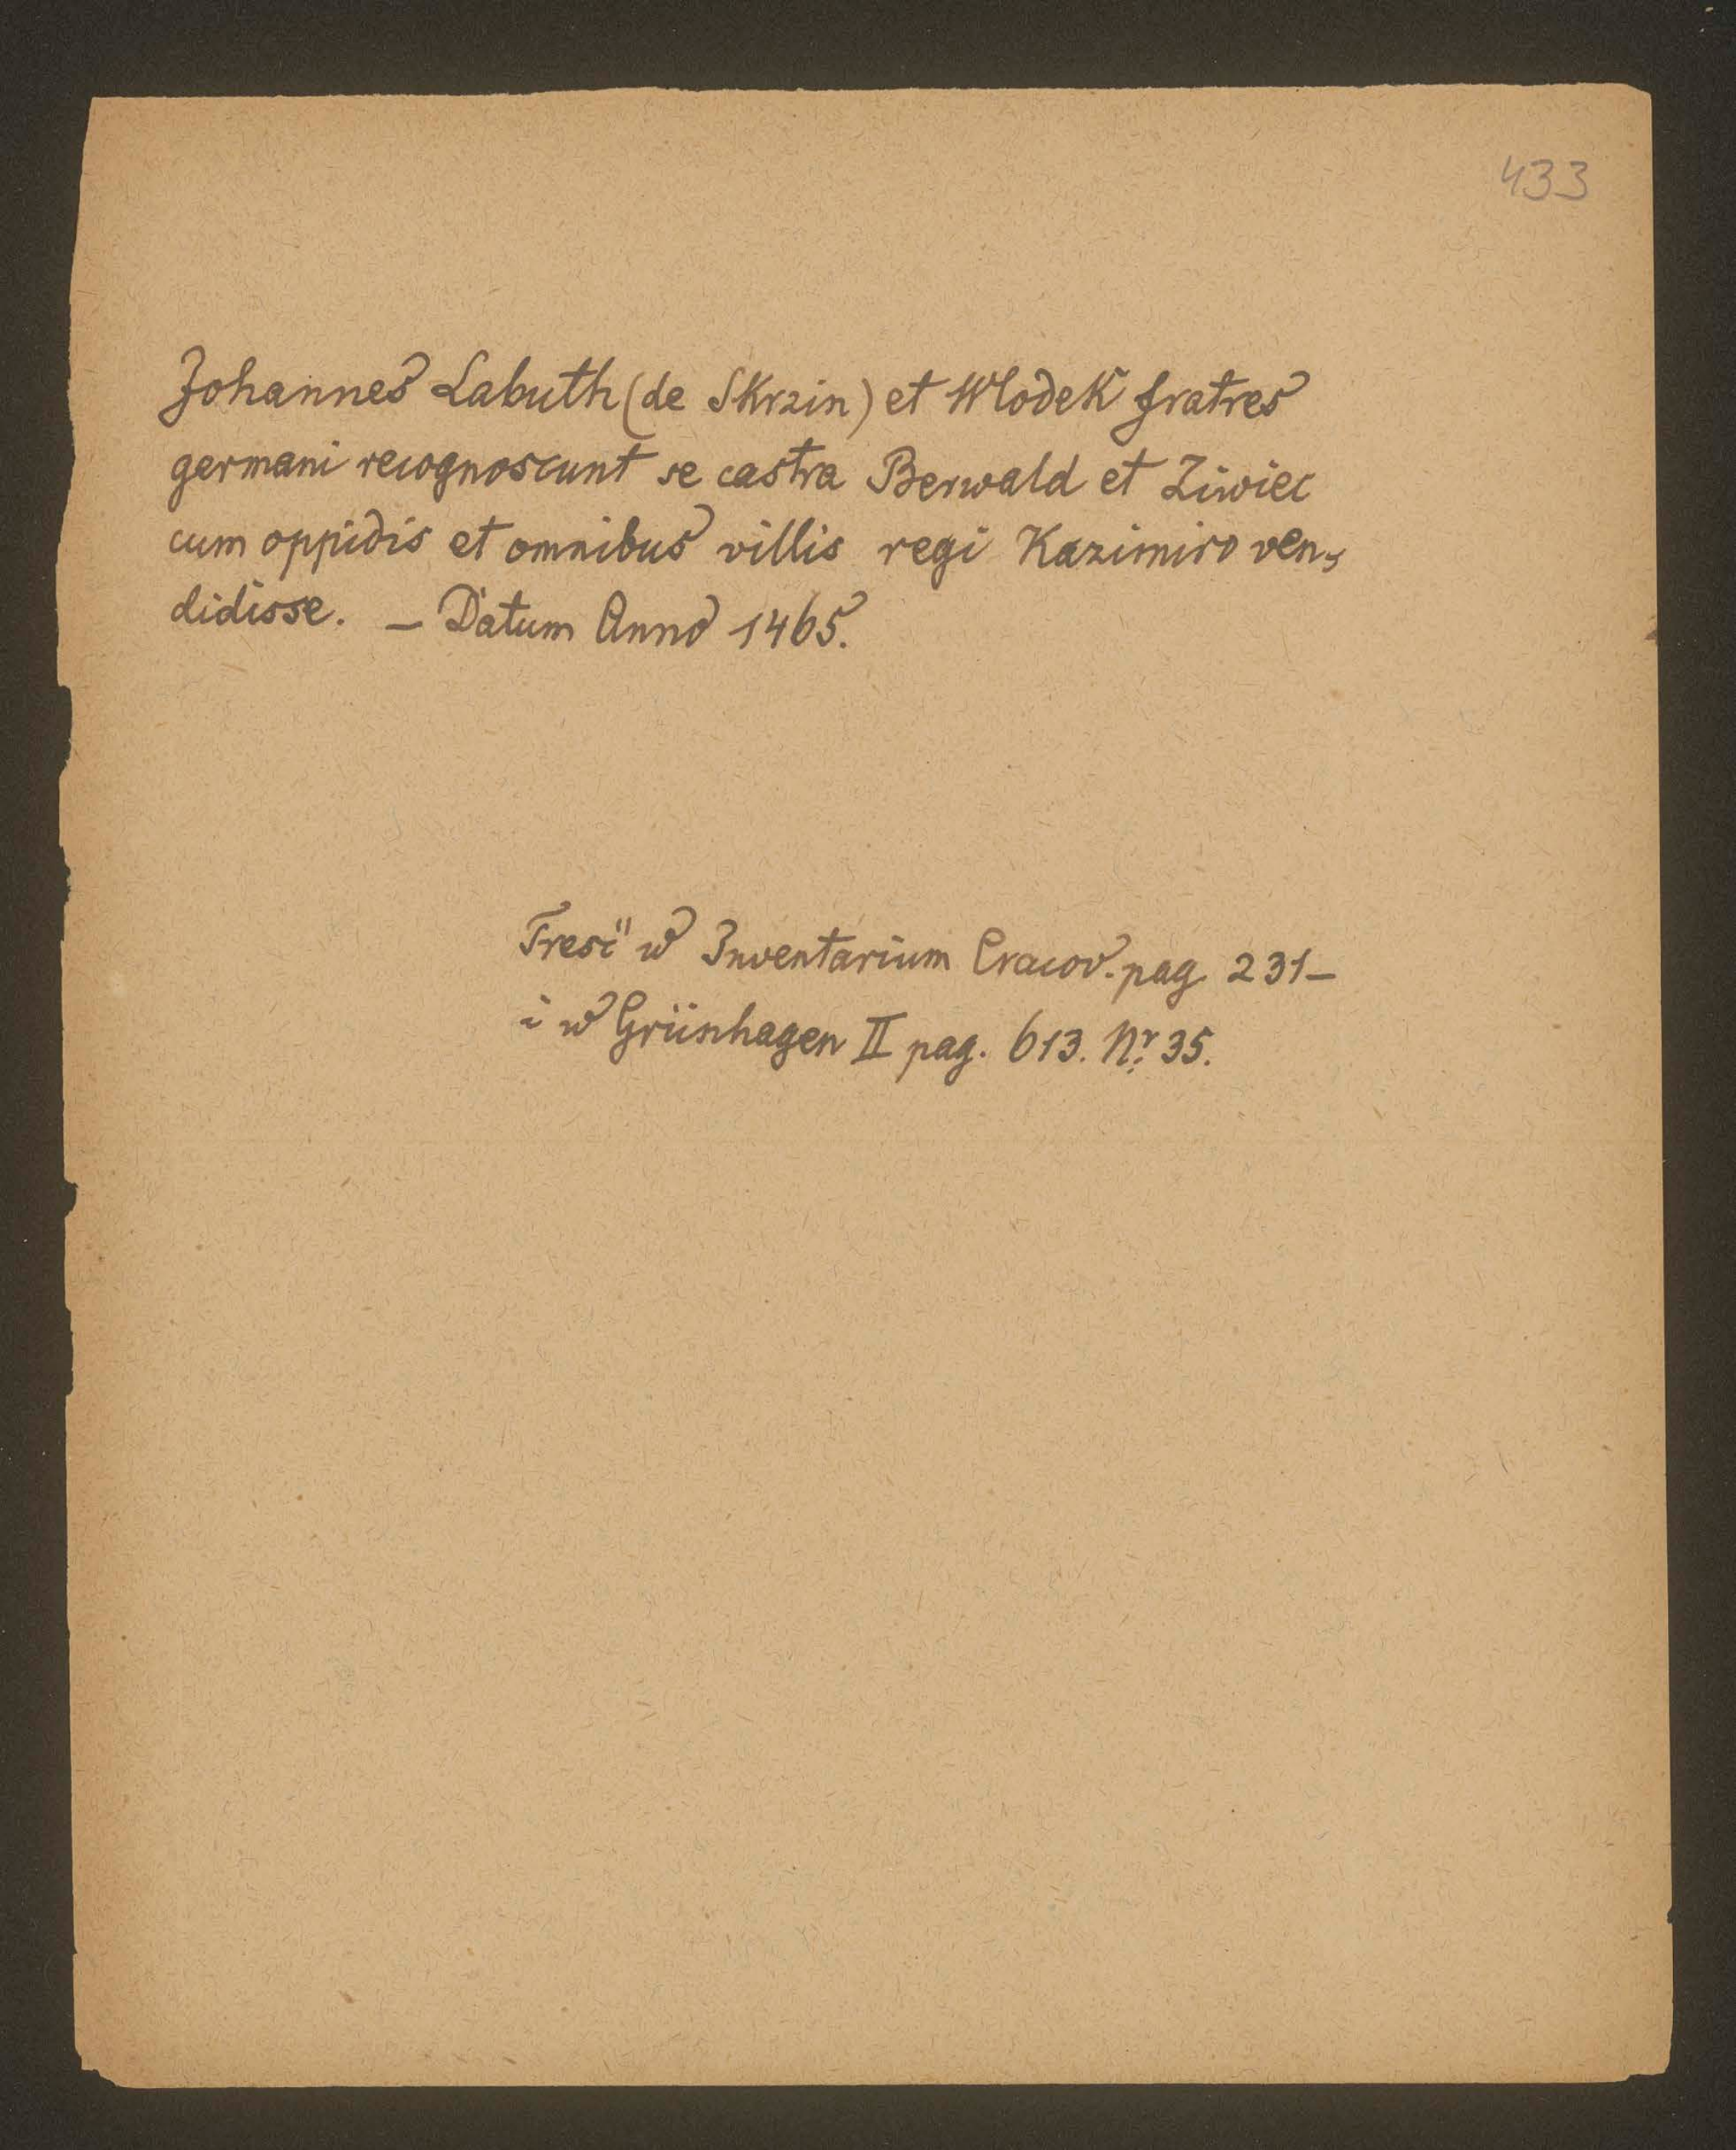 433
Johannes Labuth (de Skrzin) et Wlodek fratres
germani recognoscunt se castra Berwald et Ziwiec
cum oppidis et omnibus villis regi Kazimiro ven-
didisse. — Datum Anno 1465.
Treść w Inventarium Cracov. pag. 231 —
i w Grünhagen II pag. 613. Nr. 35.